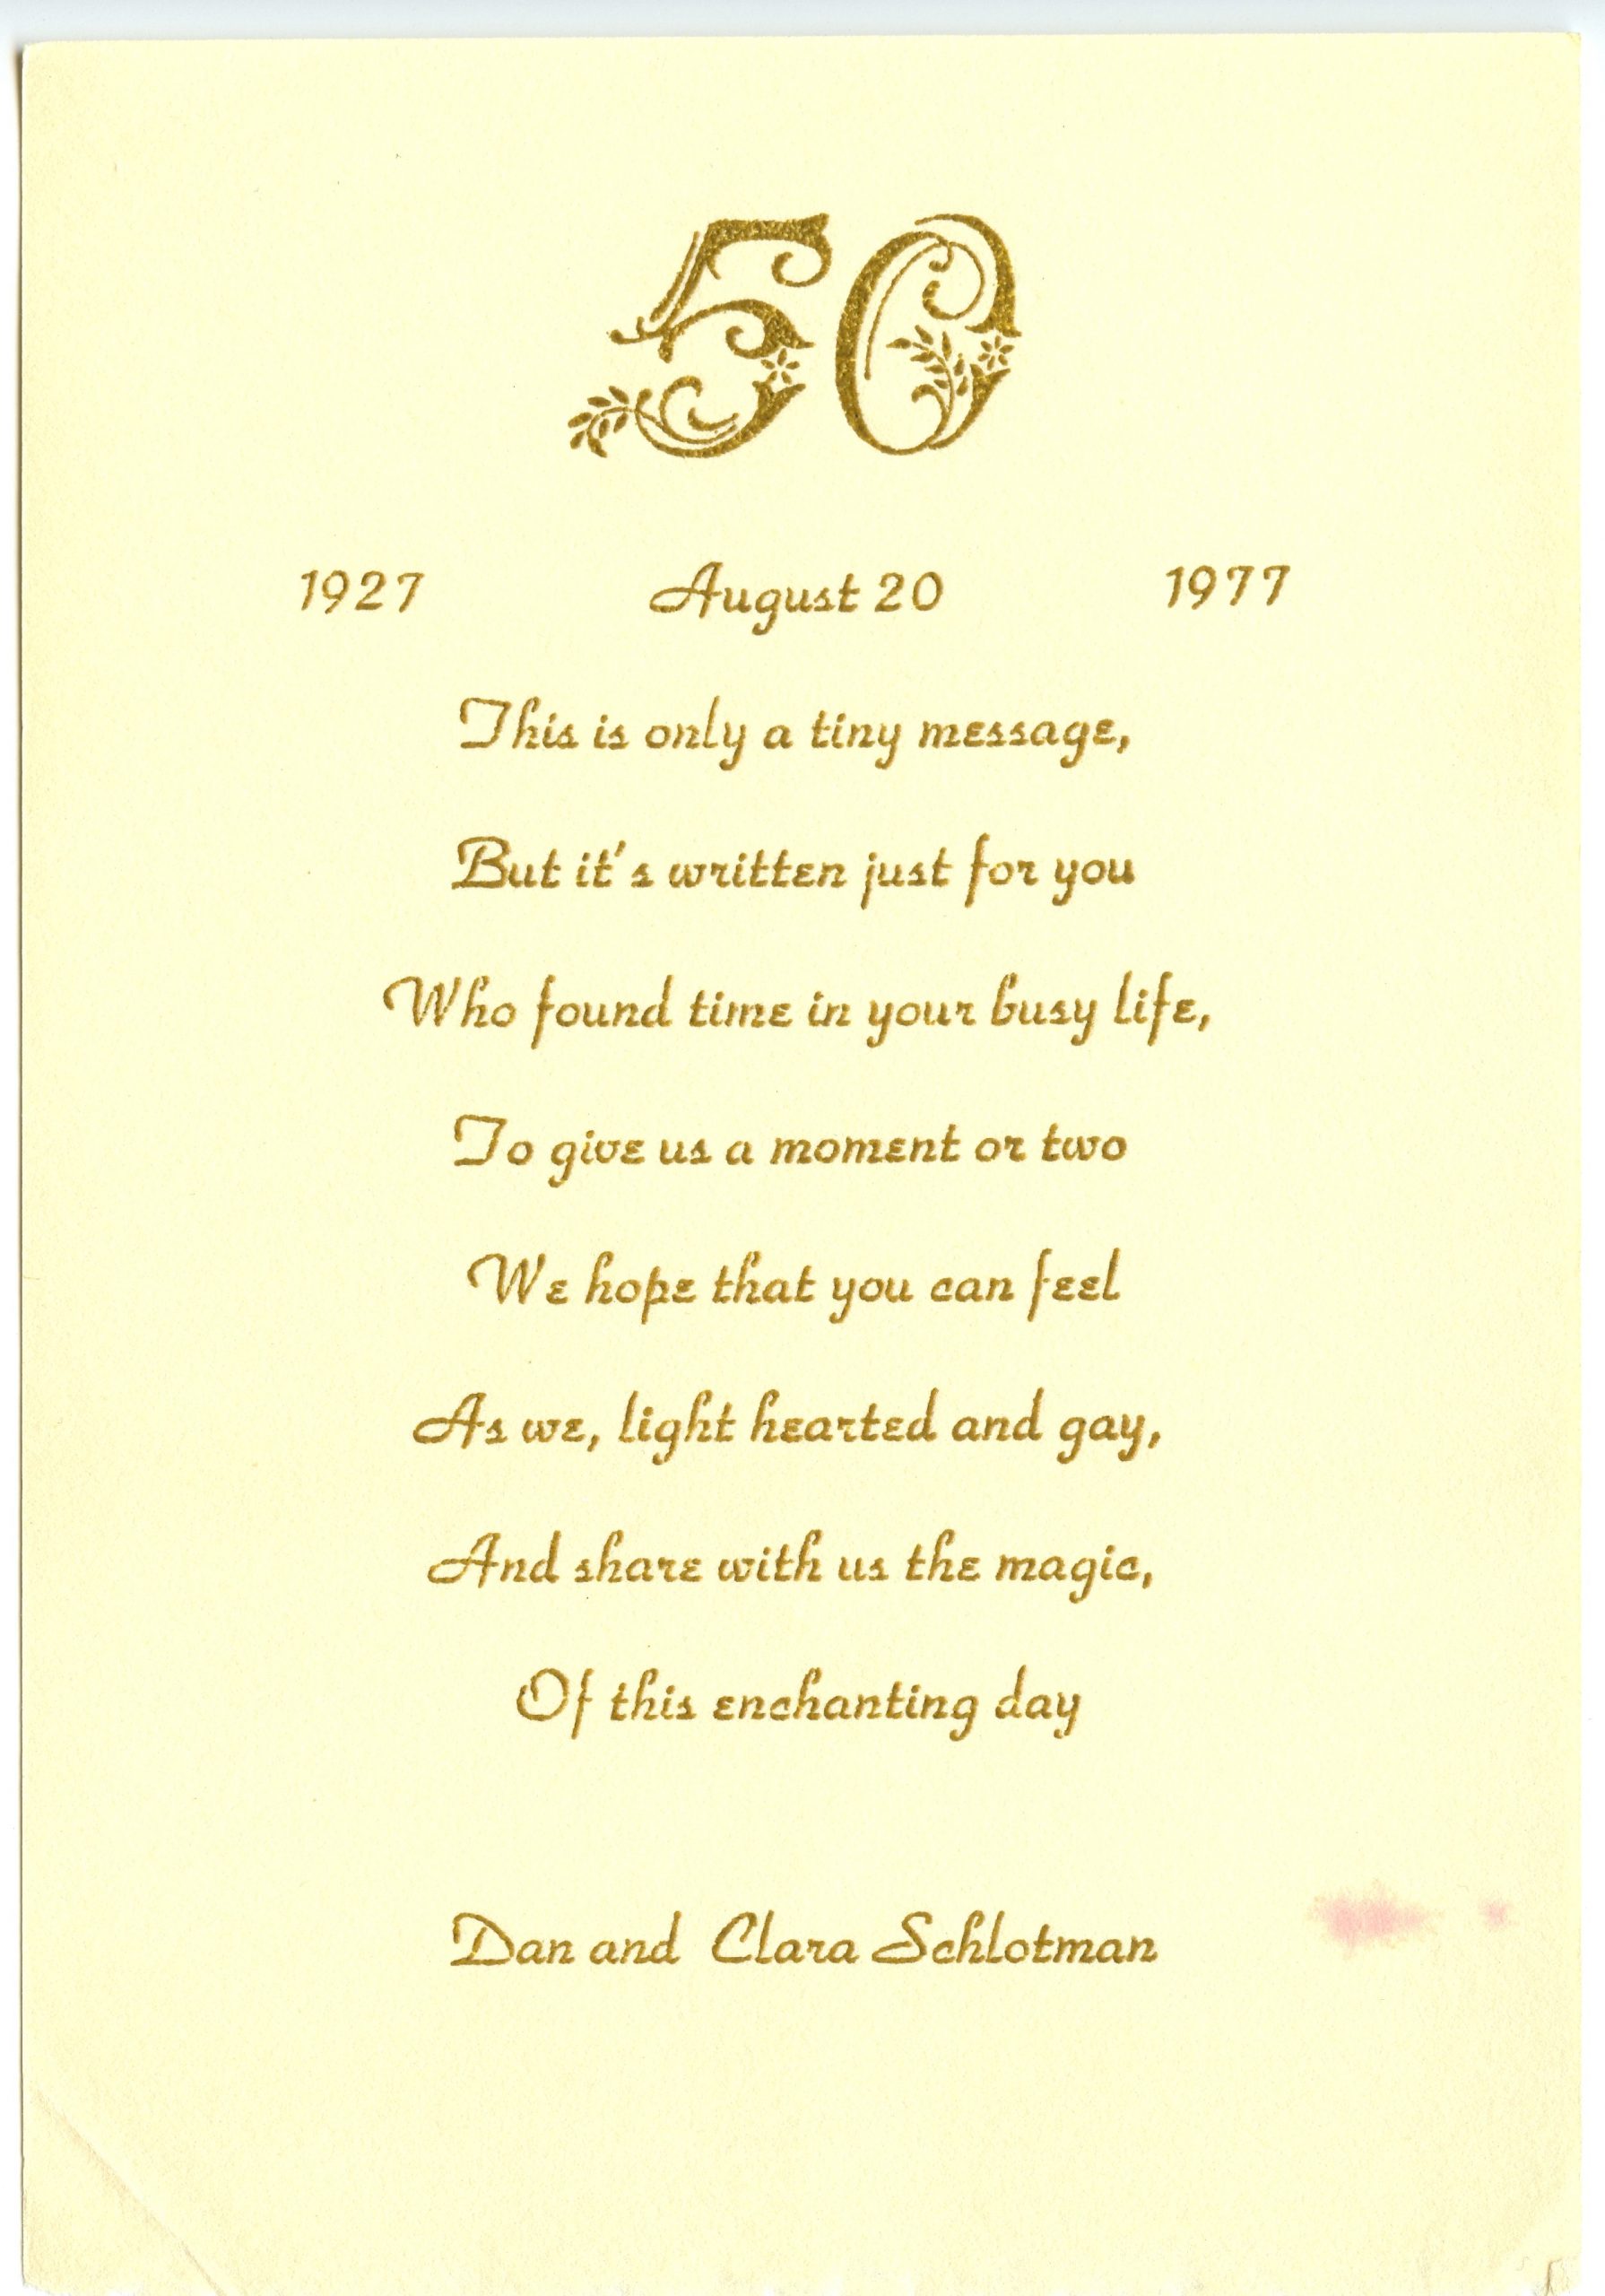 50
1927 August 20 1977
This is only a tiny message,
But it's written just for you
Who found time in your busy life,
To give us a moment or two
We hope that you can feel
As we, light hearted and gay,
And share with us the magic,
Of this enchanting day
Dan and Clara Schlotman